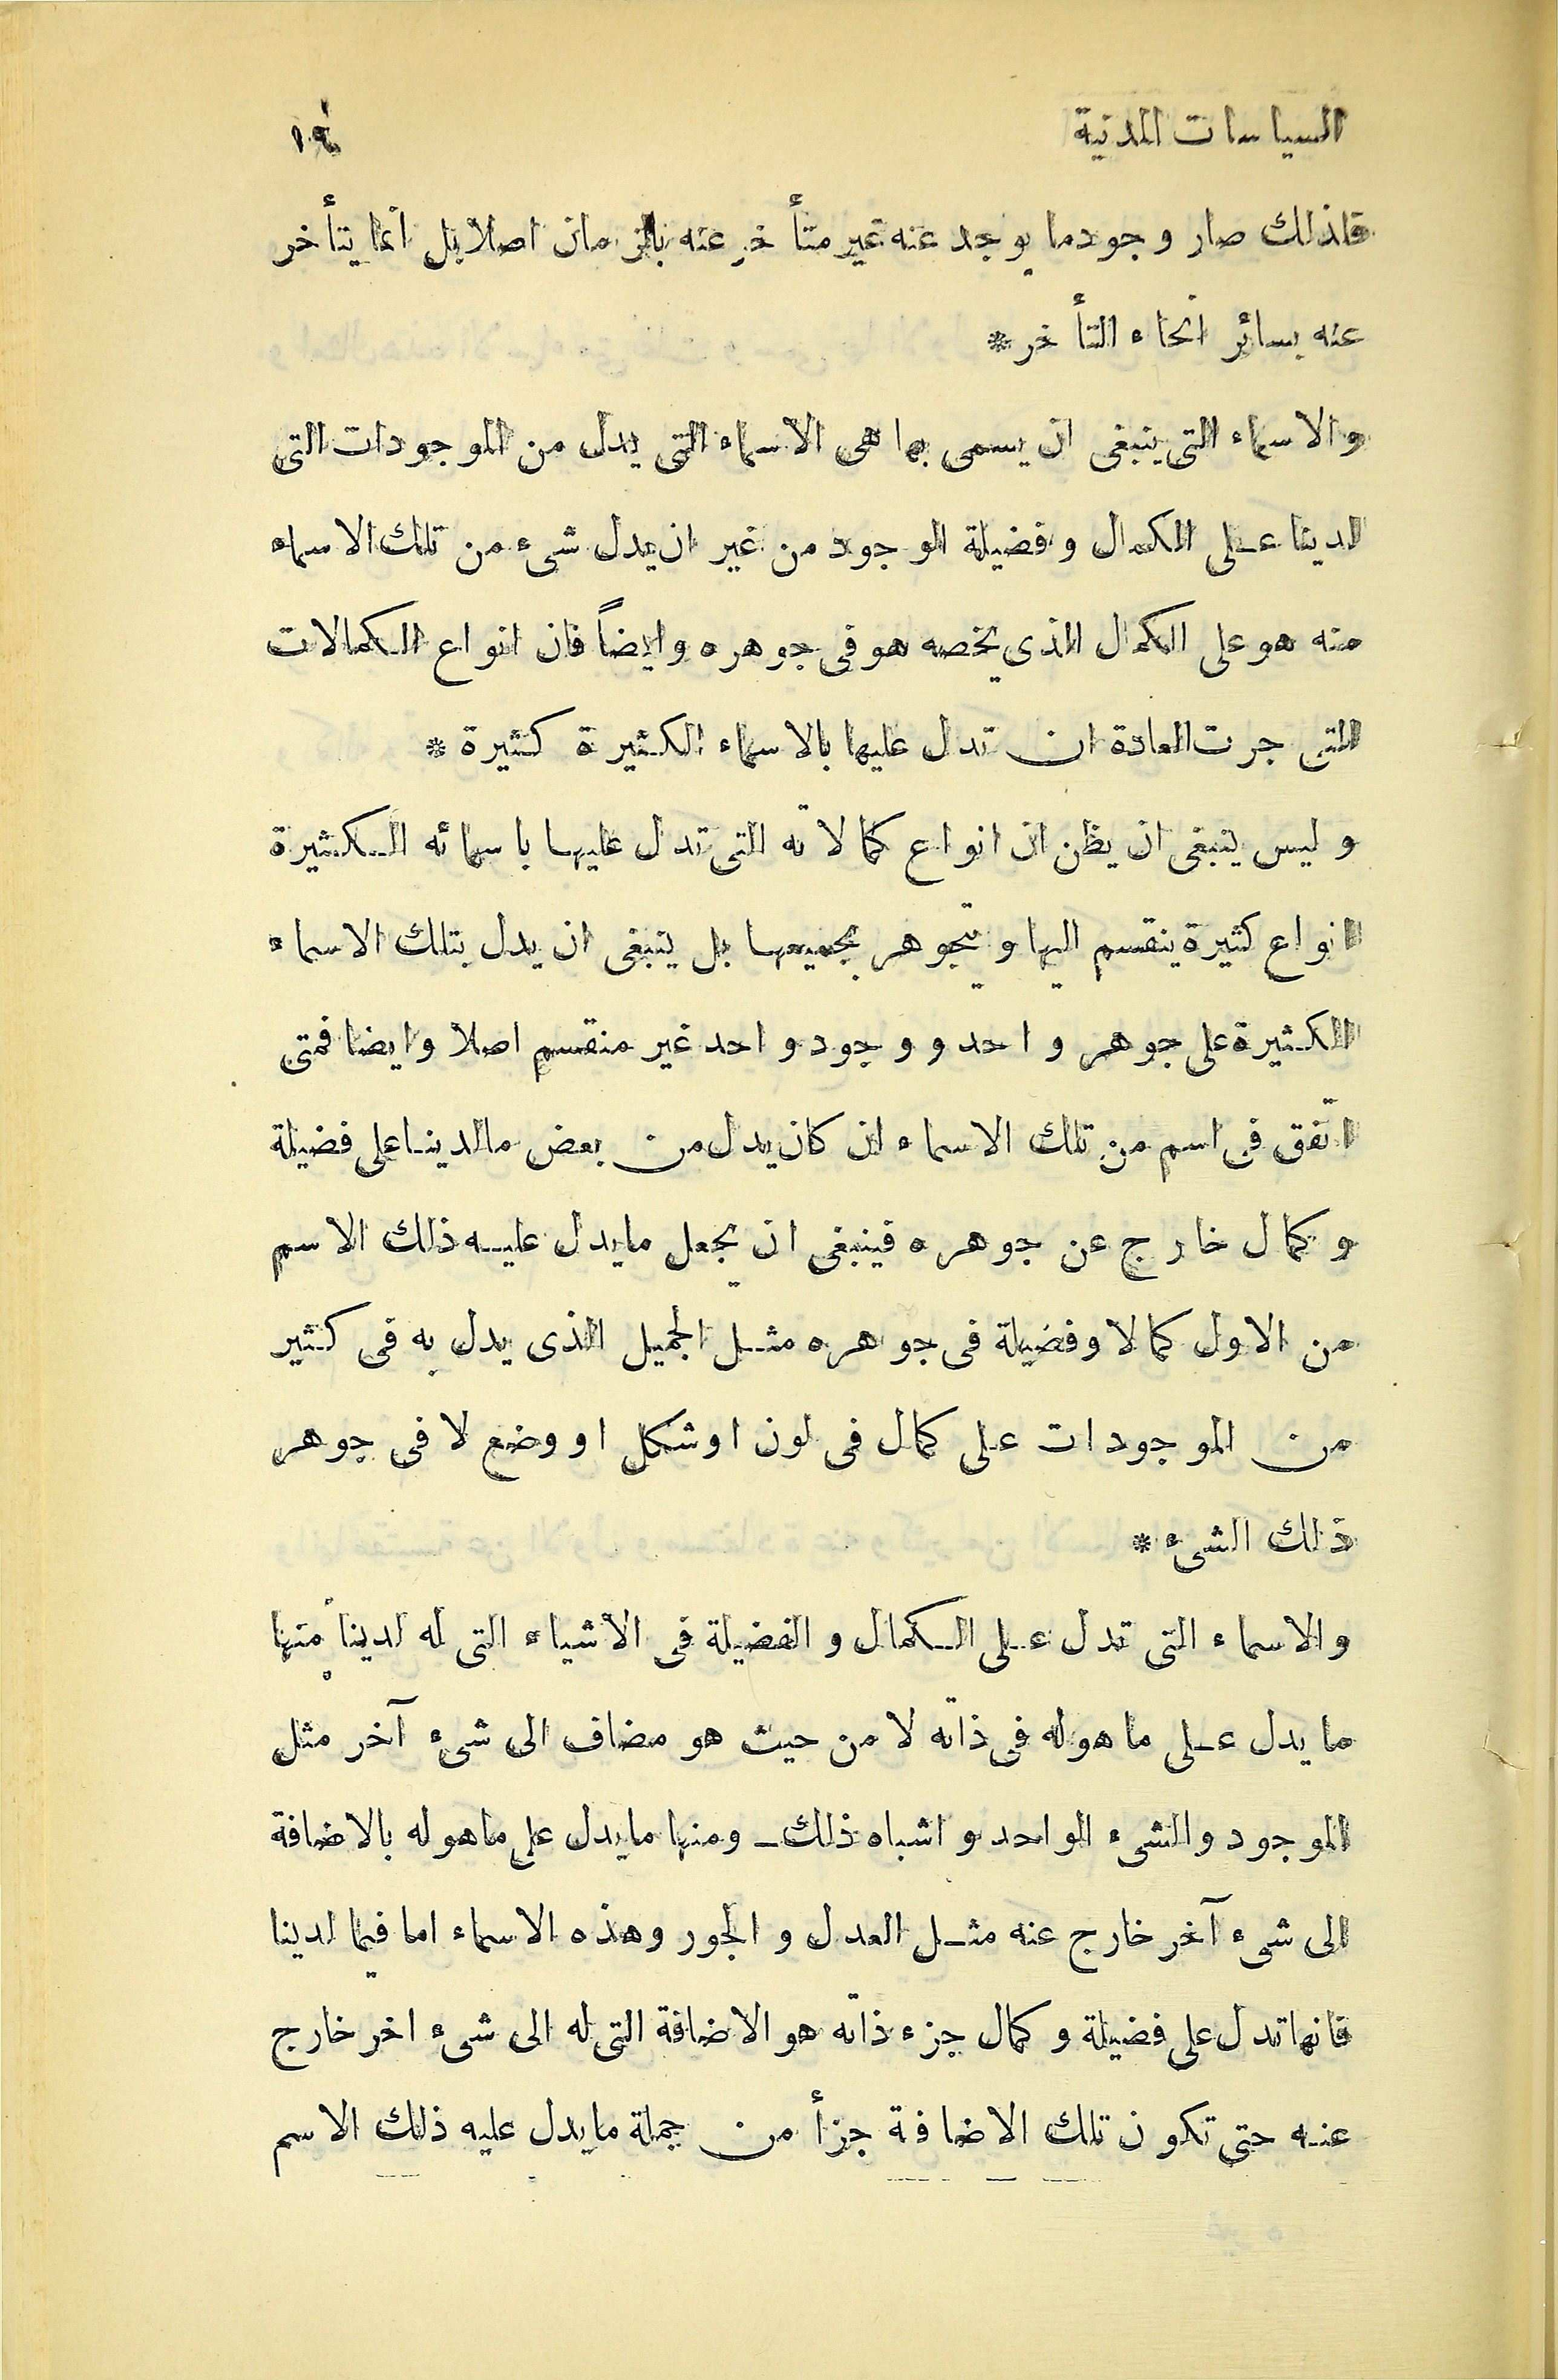 السياسات المدنية ١٩
فلذلك صار وجود ما يوجد عنه غير متأخر عنه بالزمان اصلا بل انما يتأخر
عنه بسائر انحاء التأخر *
والاسماء التى ينبغى ان يسمى بها هى الاسماء التى يدل من الموجودات التى
لدينا على الكمال وفضيلة الوجود من غير ان يدل شىء من تلك الاسماء
منه هو على الكمال الذى يخصه هو فى جوهره وايضاً فان انواع الكمالات
التى جرت العادة ان تدل عليها بالاسماء الكثيرة كثيرة *
وليس ينبغى ان يظن ان انواع كمالاته التى تدل عليها باسمائه الكثيرة
انواع كثيرة ينقسم اليها ويتجوهر بجميعها بل ينبغى ان يدل بتلك الاسماء
الكثيرة على جوهر واحد ووجود واحد غير منقسم اصلا وايضا فمتى
اتفق فى اسم من تلك الاسماء ان كان يدل من بعض مالدينا على فضيلة
وكمال خارج عن جوهره فينبغى ان يجعل مايدل عليه ذلك الاسم
من الاول كمالا وفضيلة فى جوهره مثل الجميل الذى يدل به فى كثير
من الموجودات على كمال فى لون اوشكل او وضع لا فى جوهر
ذلك الشىء *
والاسماء التى تدل على الكمال والفضيلة فى الأشياء التى له لدينا منها
ما يدل على ما هوله فى ذاته لا من حيث هو مضاف الى شىء آخر مثل
الموجود والشىء الواحد و اشباه ذلك ــ ومنها مايدل على ماهوله بالاضافة
الى شىء آخر خارج عنه مثل العدل والجور وهذه الاسماء اما فيما لدينا
فانها تدل على فضيلة وكمال جزء ذاته هو الاضافة التى له الى شىء اخر خارج
عنه حتى تكون تلك الاضافة جزأ من جملة مايدل عليه ذلك الاسم